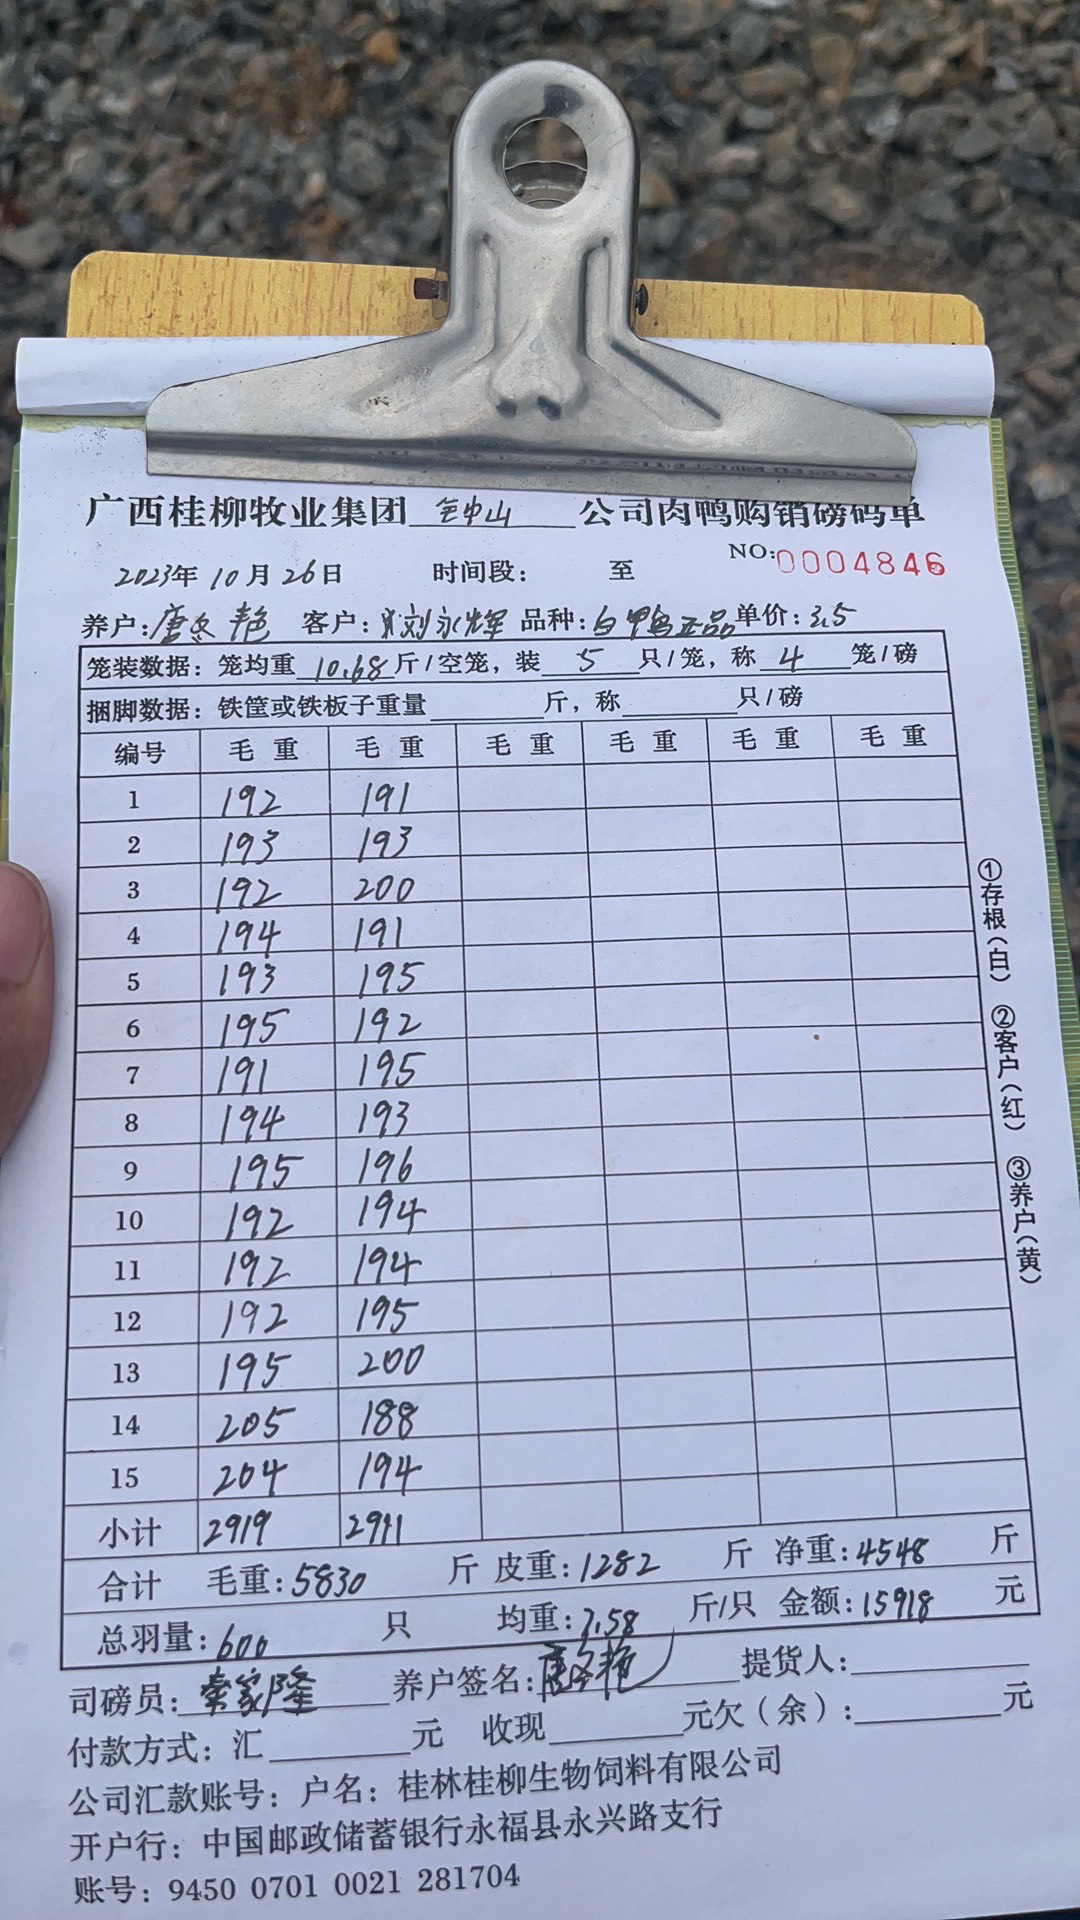 广西桂柳牧业集团 钟山 公司肉鸭购销磅码单
NO:0004846
2023年10月26日 时间段: 至
养户:唐冬艳 客户:刘永辉 品种:白鸭正品 单价:3.5
笼装数据:笼均重 10.68 斤/空笼,装 5 只/笼,称 4 笼/磅
捆脚数据:铁筐或铁板子重量 斤,称 只/磅
编号 毛重 毛重 毛重 毛重 毛重 毛重
1 192 191
2 193 193
3 192 200
4 194 191
5 193 195
6 195 192
7 191 195
8 194 193
9 195 196
10 192 194
11 192 194
12 192 195
13 195 200
14 205 188
15 204 194
小计 2919 2911
合计 毛重:5830 斤 皮重:1282 斤 净重:4548 斤
总羽量:600 只 均重:7.58 斤/只 金额:15918 元
司磅员: 家隆 养户签名:唐冬艳 提货人:
付款方式:汇 元 收现 元欠(余): 元
公司汇款账号:户名:桂林桂柳生物饲料有限公司
开户行:中国邮政储蓄银行永福县永兴路支行
账号:9450 0701 0021 281704
①存根(白) ②客户(红) ③养户(黄)